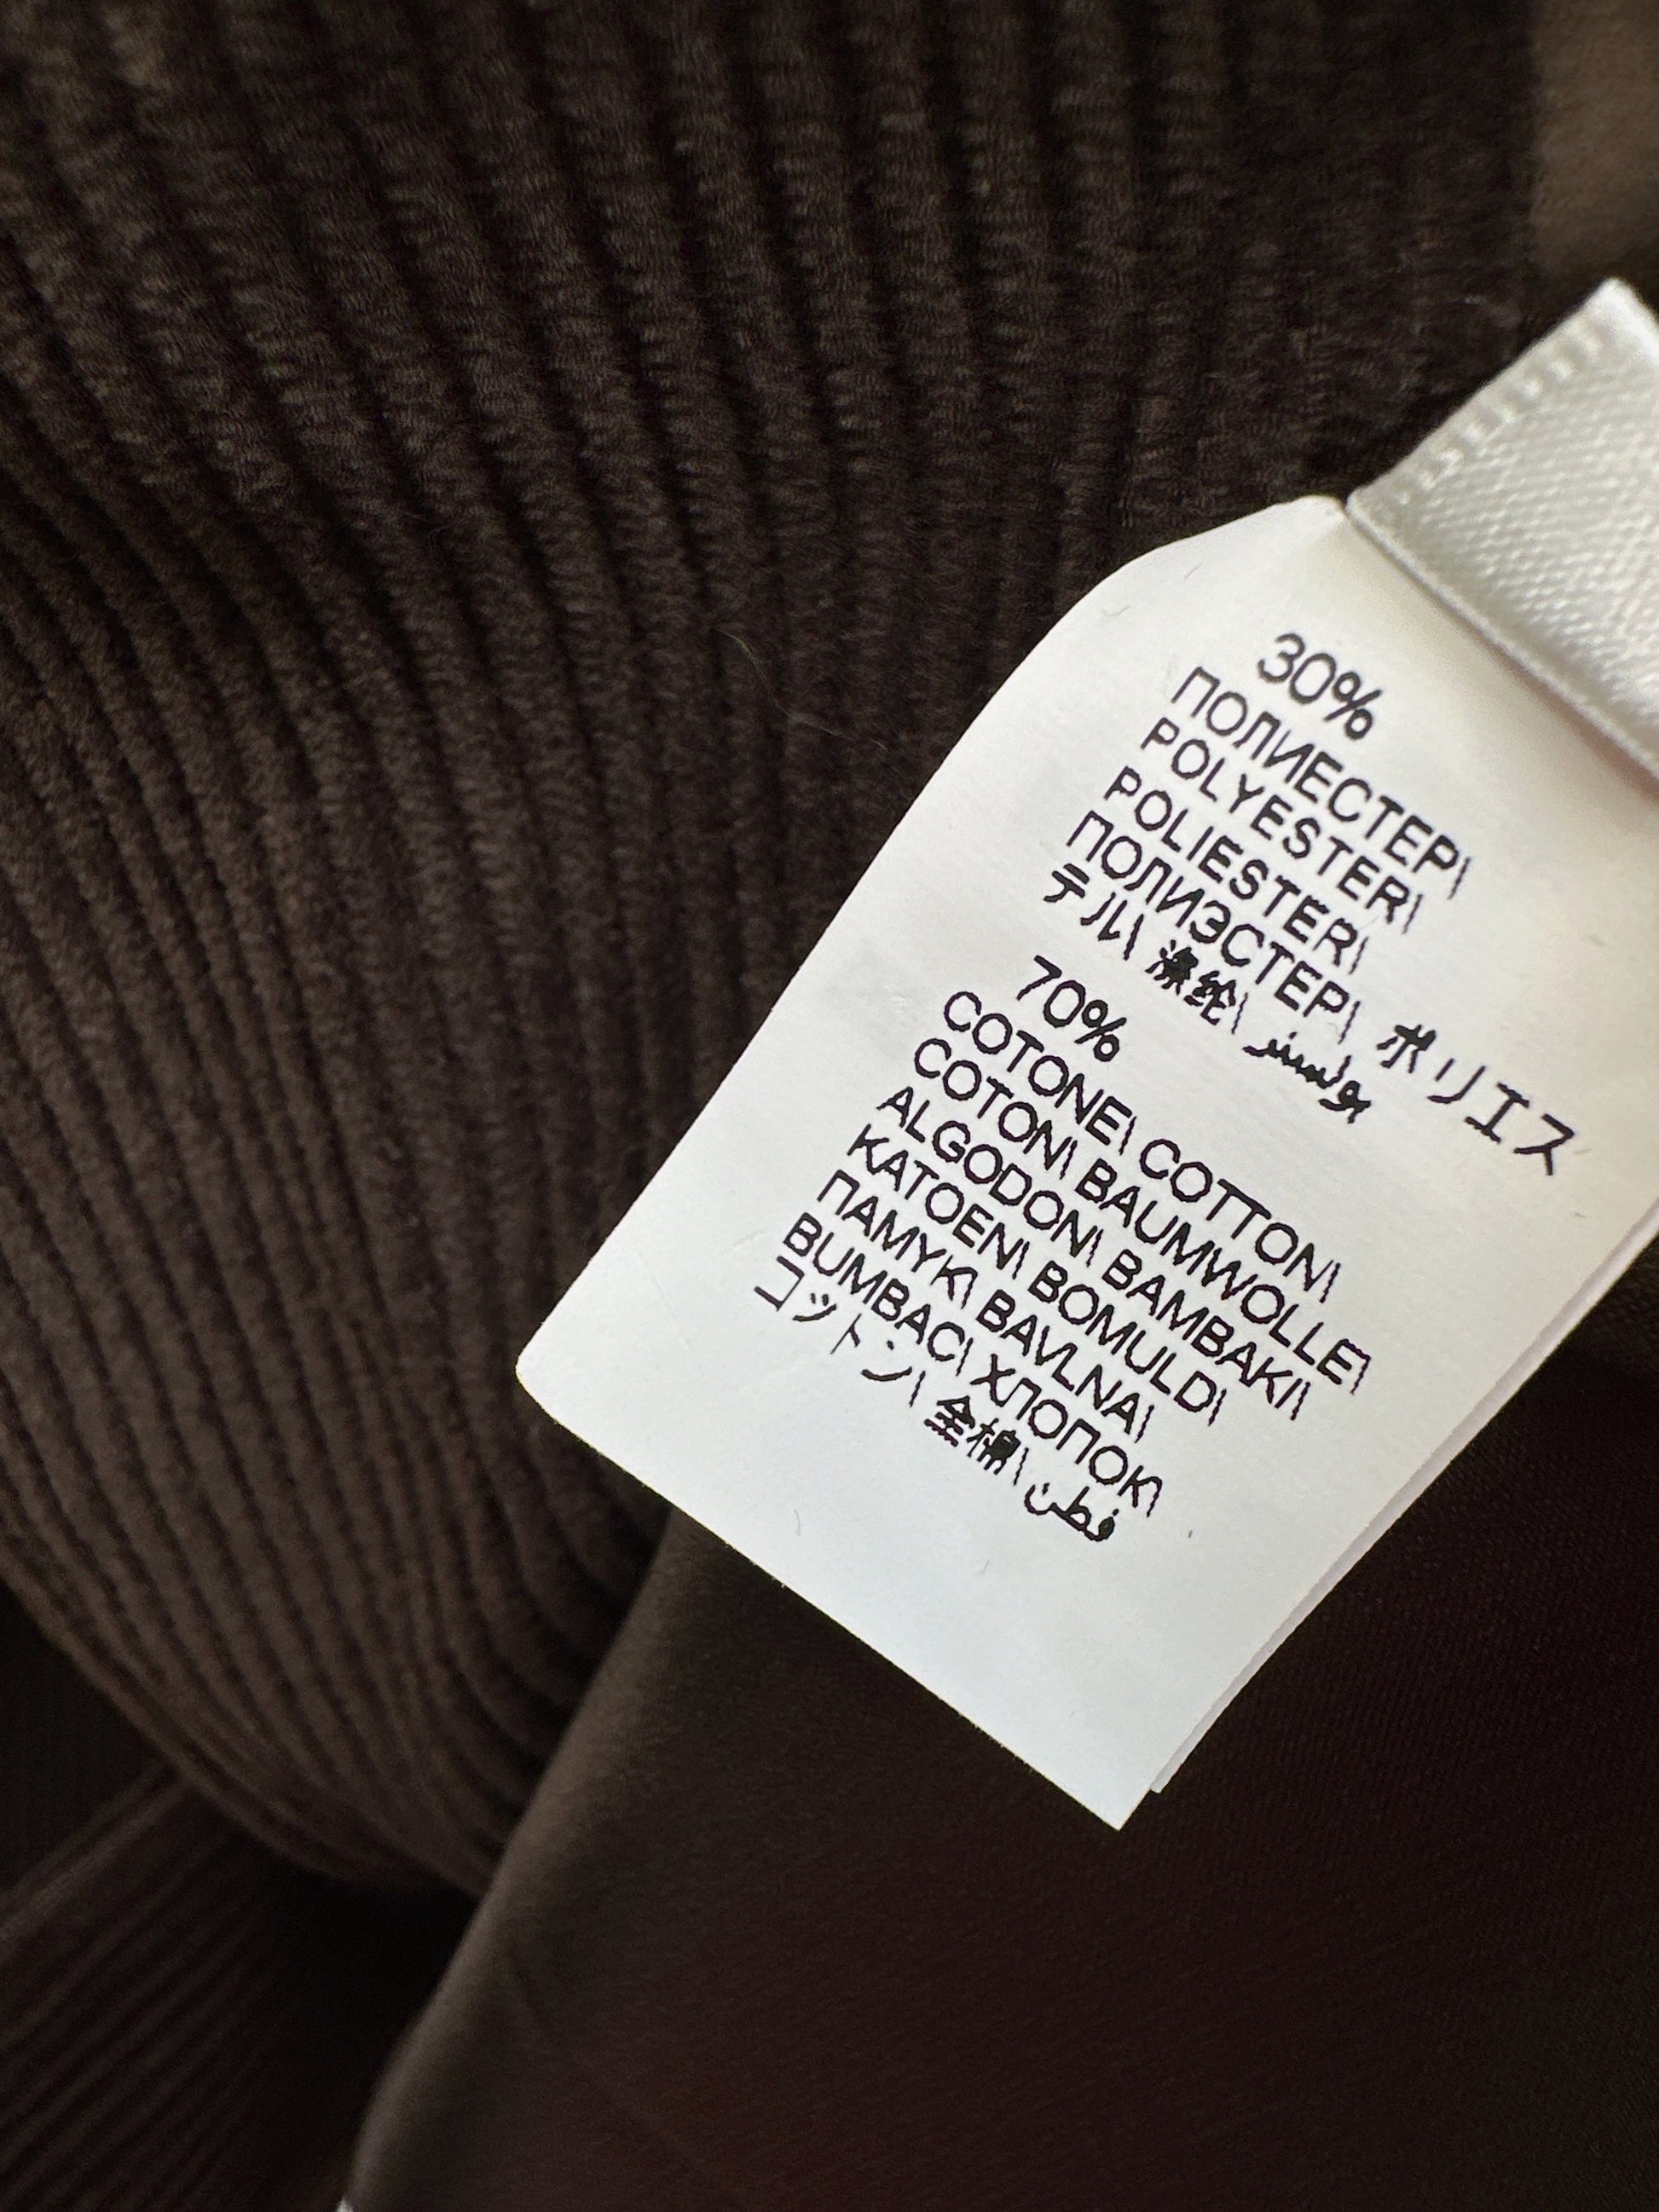 30%
ПОЛИЕСТЕР\
POLYESTER\
POLIESTER\
ПОЛИЭСТЕР\ ポリエス
テル\ 涤纶\ بولستر
70%
COTONE\ COTTON\
COTON\ BAUMWOLLE\
ALGODON\ BAMBAKI\
KATOEN\ BOMULD\
ПАМУК\ BAVLNA\
BUMBAC\ ХЛОПОК\
コットン\ 全棉\ قطن